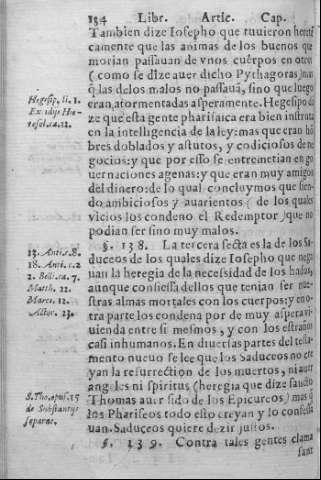 134 Libr. Artic. Cap.
Tambien dize Iosepho que tuuieron
camente que las animas de los buenos que
morian passauan de vnos cuerpos en otros
(como se dize auer dicho Pythagoras)
q̃ las delos malos no passauã, sino que luego
eran atormentadas asperamente. Hegesipo di
ze que esta gente pharisaica era bien instruta
en la intelligencia de la ley: mas que eran hõ
bres doblados y astutos, y codiciosos de ne
gocios: y que por esso se entremetian en go
uernaciones agenas: y que eran muy amigos
del dinero: de lo qual concluymos que sien
do ambiciosos y auarientos (de los quales
vicios los condeno el Redemptor) que no
podian ser sino muy malos.
§. 138. La tercera secta es la de los Sa
duceos de los quales dize Iosepho que nega
uan la heregia de la necessidad de los hados,
aunque confiessa dellos que tenian ser nue
stras almas mortales con los cuerpos: y en o
tra parte los condena por de muy aspera vi
uienda entre si mesmos, y con los estraños
casi inhumanos. En diuersas partes del testa
mento nueuo se lee que los Saduceos no cre
yan la resurrection de los muertos, ni auer
angeles ni spiritus (heregia que dize sancto
Thomas auer sido de los Epicureos) mas q̃
los Phariseos todo esto creyan y lo confessa
uan. Saduceos quiere dezir justos.
§. 139. Contra tales gentes clama
sant
Hegesip. li. 1.
Excidij Hie
rosol. ca. 12.
13. Anti. c. 8.
18. Anti. c. 2
2. Bell. ca. 7.
Matth. 22.
Marci. 12.
Actor. 23.
S. Tho. opus. 15
de Substantijs
separat.